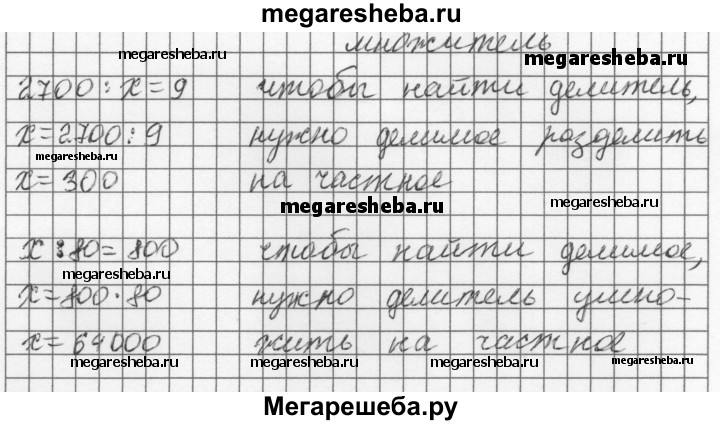 megaresheba.ru
множитель
megaresheba.ru
megaresheba.ru
2700 : x = 9 чтобы найти делитель,
megaresheba.ru
x = 2700 : 9 нужно делимое разделить
megaresheba.ru
x = 300 на частное
megaresheba.ru
megaresheba.ru
x : 80 = 800 чтобы найти делимое,
megaresheba.ru
megaresheba.ru
x = 800 · 80 нужно делитель умно-
x = 64000 жить на частное
megaresheba.ru
megaresheba.ru
megaresheba.ru
megaresheba.ru
Мегарешеба.ру